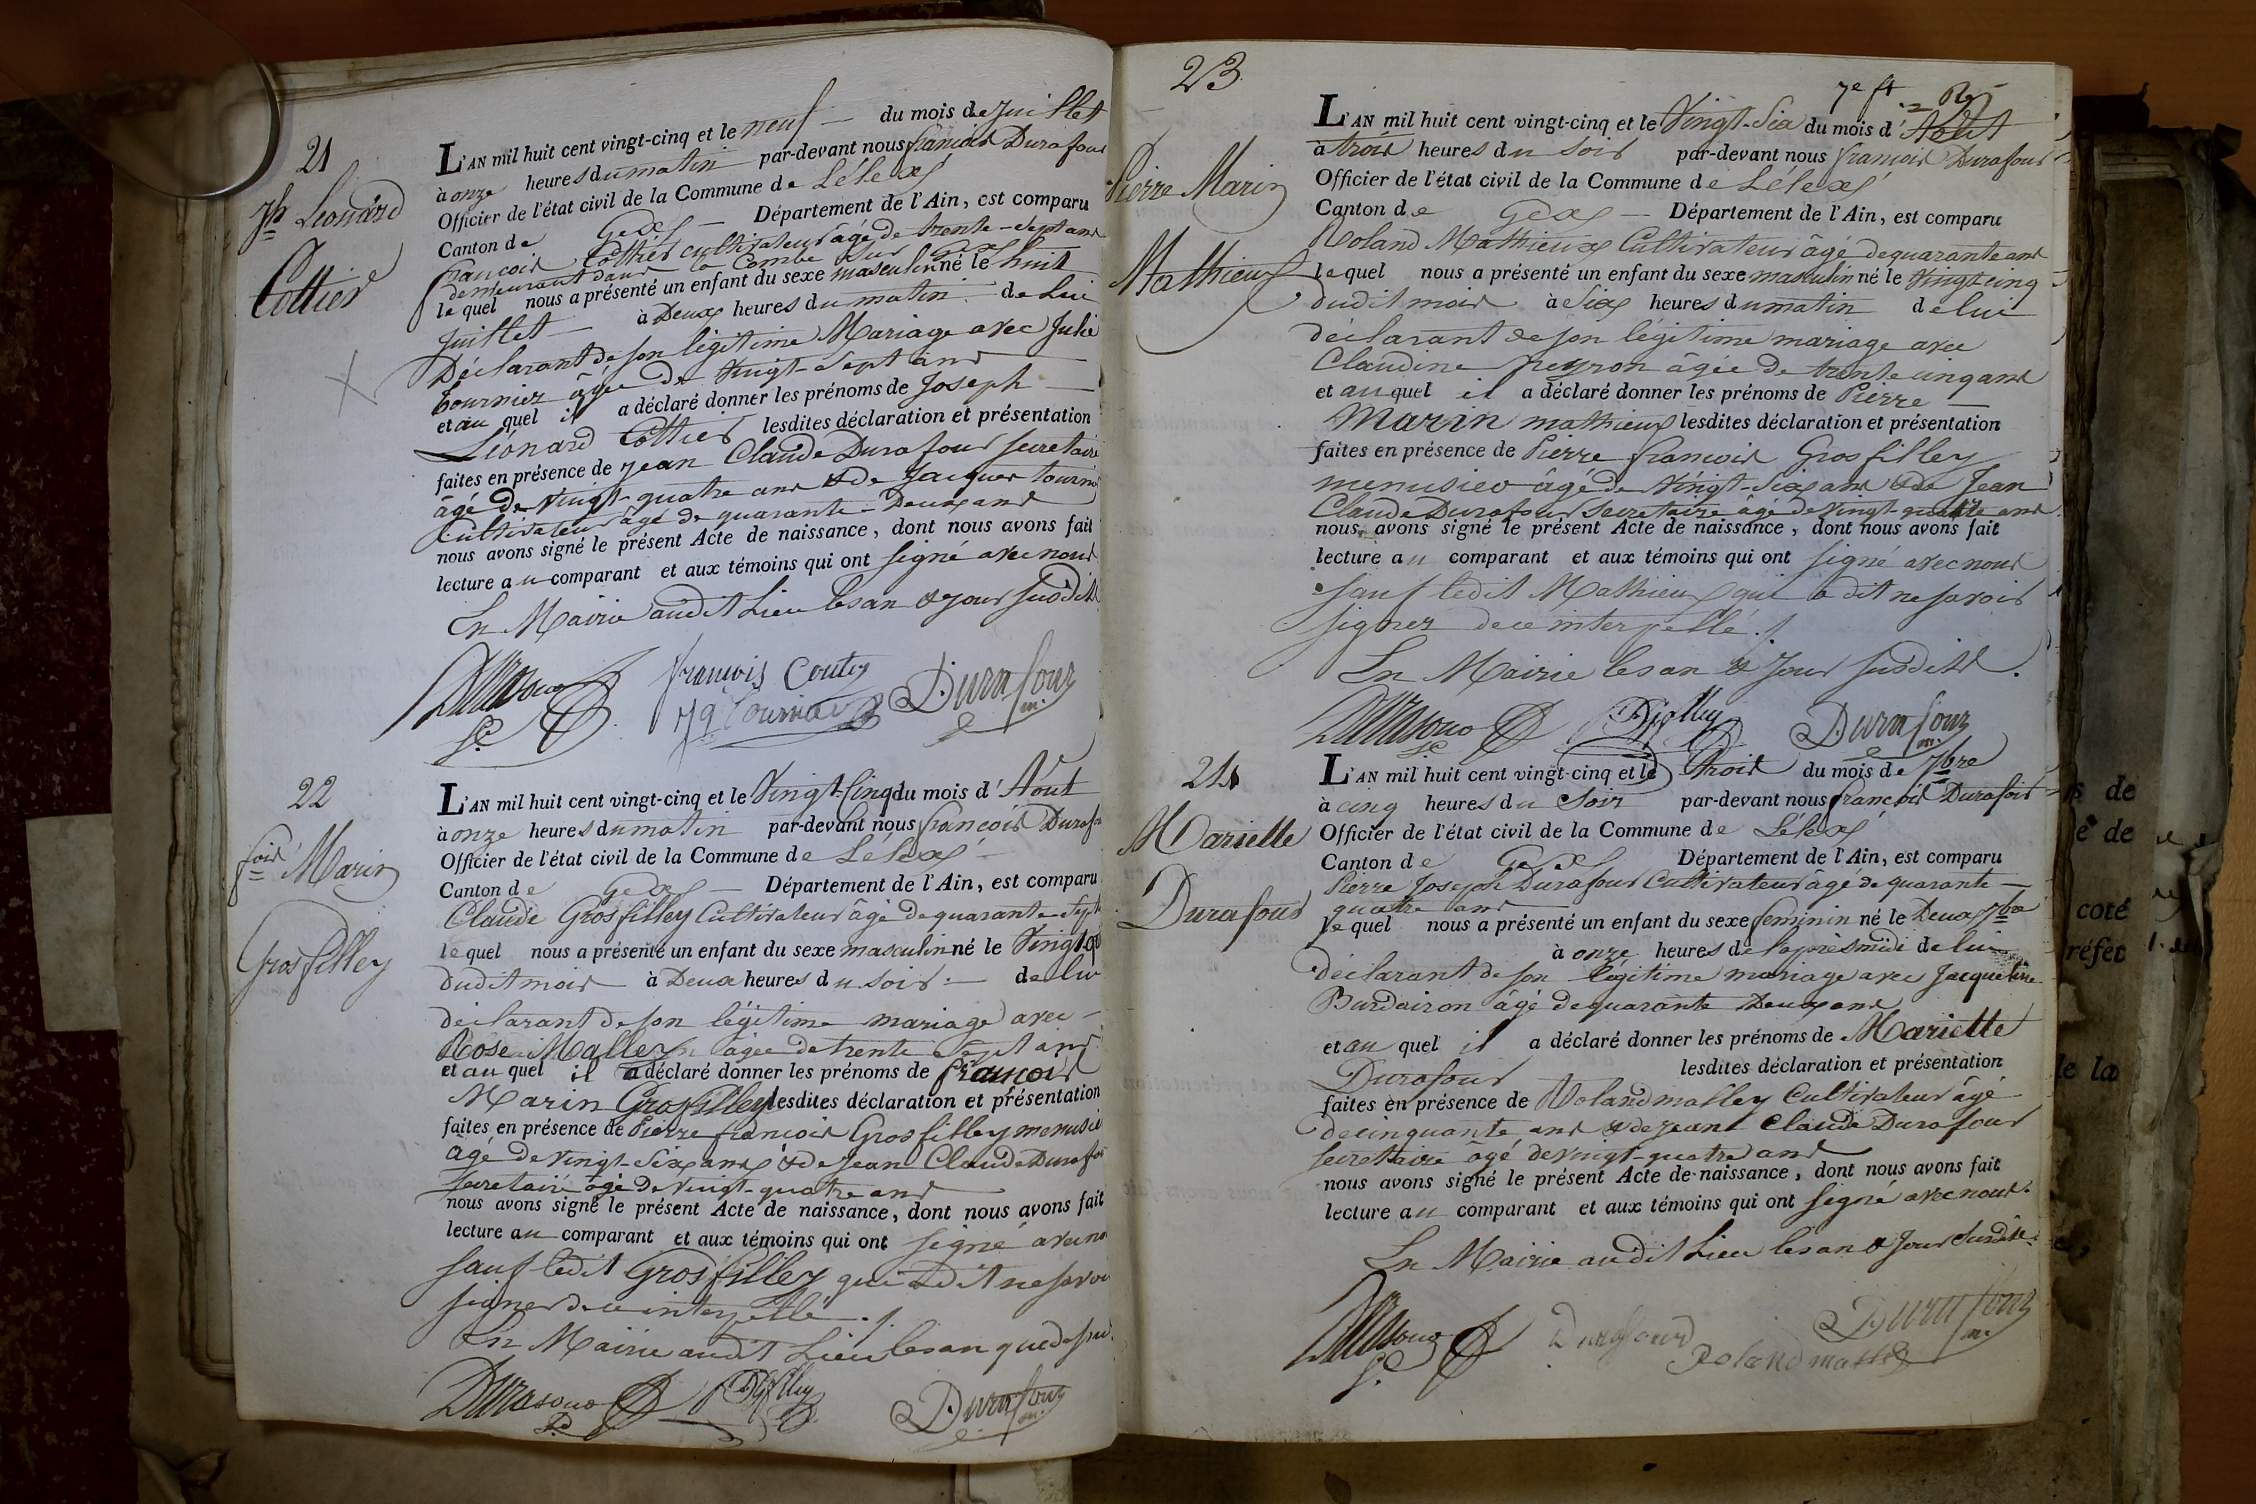 21
Jh Léonard
Cottier
L'AN mil huit cent vingt-cinq et le neuf du mois de Juillet
à onze heures du matin par-devant nous françois Durafour
Officier de l'état civil de la Commune de Lélex
Canton de Gex Département de l'Ain, est comparu
françois Cottier cultivateur âgé de trente-sept ans
demeurant dans la Combe sur Gex
le quel nous a présenté un enfant du sexe masculin né le huit
Juillet à Deux heures du matin de Lui
Déclarant de son légitime Mariage avec Julie
tournier âgée de Vingt-Sept ans
et au quel il a déclaré donner les prénoms de Joseph
Léonard Cottier lesdites déclaration et présentation
faites en présence de Jean Claude Durafour secretaire
âgé de Vingt-quatre ans & de Jacques tournier
Cultivateur âgé de quarante-Deux ans
nous avons signé le présent Acte de naissance, dont nous avons fait
lecture au comparant et aux témoins qui ont signé avec nous
En Mairie audit Lieu les an & jour susdits
Durafour françois Coutier Durafour
sre Jq Tournier m.
22
fois Marin
Grosfilley
L'AN mil huit cent vingt-cinq et le Vingt-Cinq du mois d'Aout
à onze heures du matin par-devant nous françois Durafour
Officier de l'état civil de la Commune de Lélex
Canton de Gex Département de l'Ain, est comparu
Claude Grosfilley Cultivateur âgé de quarante-sept
le quel nous a présenté un enfant du sexe masculin né le Vingt
dudit mois à Deux heures du soir de lui
déclarant de son légitime mariage avec
Rose Malley âgée de trente Sept ans
et au quel il a déclaré donner les prénoms de françois
Marin Grosfilley lesdites déclaration et présentation
faites en présence de Pierre françois Grosfilley menusier
âgé de vingt-Six ans & de Jean Claude Durafour
secretaire âgé de vingt-quatre ans
nous avons signé le présent Acte de naissance, dont nous avons fait
lecture au comparant et aux témoins qui ont signé avec nous
sauf ledit Grosfilley qui a dit ne savoir
signer de ce interpellé ./.
En Mairie audit Lieu les an que dessus
Durafour Durafour
23
Pierre Marin
Mathieux
7e ft
L'AN mil huit cent vingt-cinq et le Vingt-Six du mois d'Août
à trois heures du soir par-devant nous françois Durafour
Officier de l'état civil de la Commune de Lélex
Canton de Gex Département de l'Ain, est comparu
Roland Mathieux Cultivateur âgé de quarante ans
le quel nous a présenté un enfant du sexe masculin né le Vingt cinq
dudit mois à Six heures du matin de lui
déclarant de son légitime mariage avec
Claudine peyron âgée de trente cinq ans
et au quel il a déclaré donner les prénoms de Pierre
Marin mathieux lesdites déclaration et présentation
faites en présence de Pierre françois Grosfilley
menusier âgé de Vingt-Six ans & de Jean
Claude Durafour Secretaire âgé de vingt-quatre ans
nous avons signé le présent Acte de naissance, dont nous avons fait
lecture au comparant et aux témoins qui ont signé avec nous
sauf ledit Mathieux qui a dit ne savoir
signer de ce interpellé ./.
En Mairie les an & Jour susdits.
Durafour Durafour
24
Mariette
Durafour
L'AN mil huit cent vingt-cinq et le trois du mois de 7bre
à cinq heures du Soir par-devant nous françois Durafour
Officier de l'état civil de la Commune de Lélex
Canton de Gex Département de l'Ain, est comparu
Pierre Joseph Durafour Cultivateur âgé de quarante
quatre ans
le quel nous a présenté un enfant du sexe feminin né le Deux 7bre
à onze heures de l'après midi de lui
déclarant de son légitime mariage avec Jacqueline
Burdairon âgé de quarante Deux ans
et au quel il a déclaré donner les prénoms de Mariette
Durafour lesdites déclaration et présentation
faites en présence de Roland malley Cultivateur âgé
de cinquante ans & de Jean Claude Durafour
secretaire âgé de vingt-quatre ans
nous avons signé le présent Acte de naissance, dont nous avons fait
lecture au comparant et aux témoins qui ont signé avec nous.
En Mairie audit Lieu les an & Jour Susdits.
Durafour Durafour Durafour
Roland malley
de
de
coté
réfet
de la